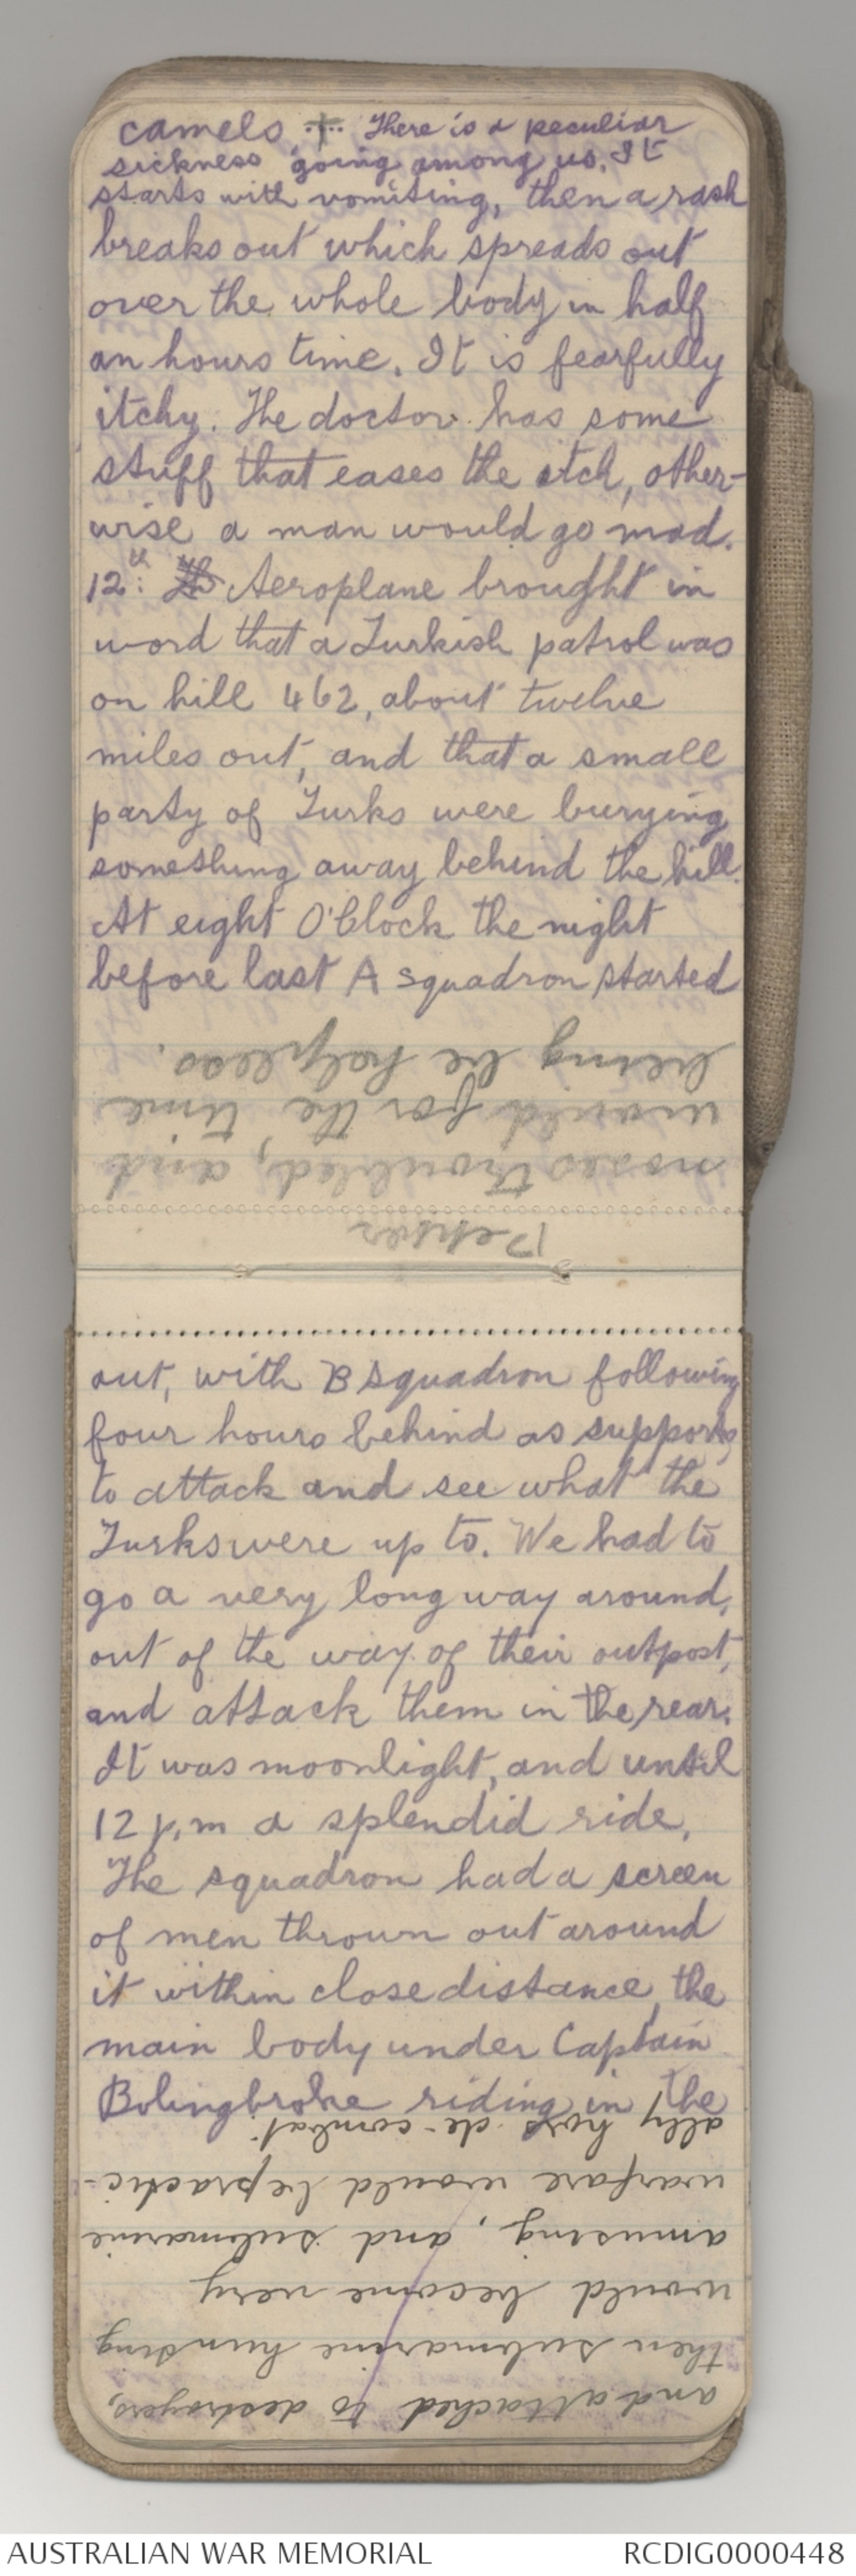 camels . + .. There is a peculiar
sickness going among us. It
starts with vomiting, then a rash
breaks out which spreads out
over the whole body in half
an hours time. It is fearfully
itchy. The doctor has some
stuff that eases the itch, other-
wise a man would go mad.
12th: Aeroplane brought in
word that a Turkish patrol was
on hill 462, about twelve
miles out, and that a small
party of Turks were burying
something away behind the hill.
At eight O'Clock the night
before last A squadron started
being be helpless.
would for the time
noses troubled, and
Pepper
out, with B squadron following
four hours behind as supports,
to attack and see what the
Turks were up to. We had to
go a very long way around,
out of the way of their outpost,
and attack them in the rear.
It was moonlight, and until
12 p.m a splendid ride.
The squadron had a screen
of men thrown out around
it within close distance, the
main body under Captain
Bolingbroke riding in the
ally hors-de-combat.
warfare would be practic-
amusing, and submarine
would become very
then submarine hunting
and attached to destroyers,
AUSTRALIAN WAR MEMORIAL
RCDIG0000448